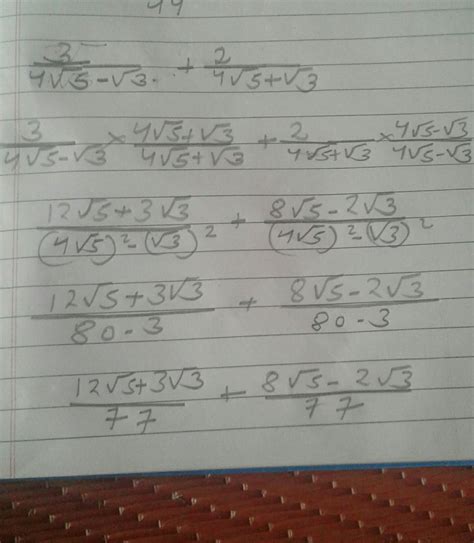 3/(4√5-√3) + 2/(4√5+√3)
3/(4√5-√3) × (4√5+√3)/(4√5+√3) + 2/(4√5+√3) × (4√5-√3)/(4√5-√3)
(12√5+3√3)/((4√5)²-(√3)²) + (8√5-2√3)/((4√5)²-(√3)²)
(12√5+3√3)/(80-3) + (8√5-2√3)/(80-3)
(12√5+3√3)/77 + (8√5-2√3)/77